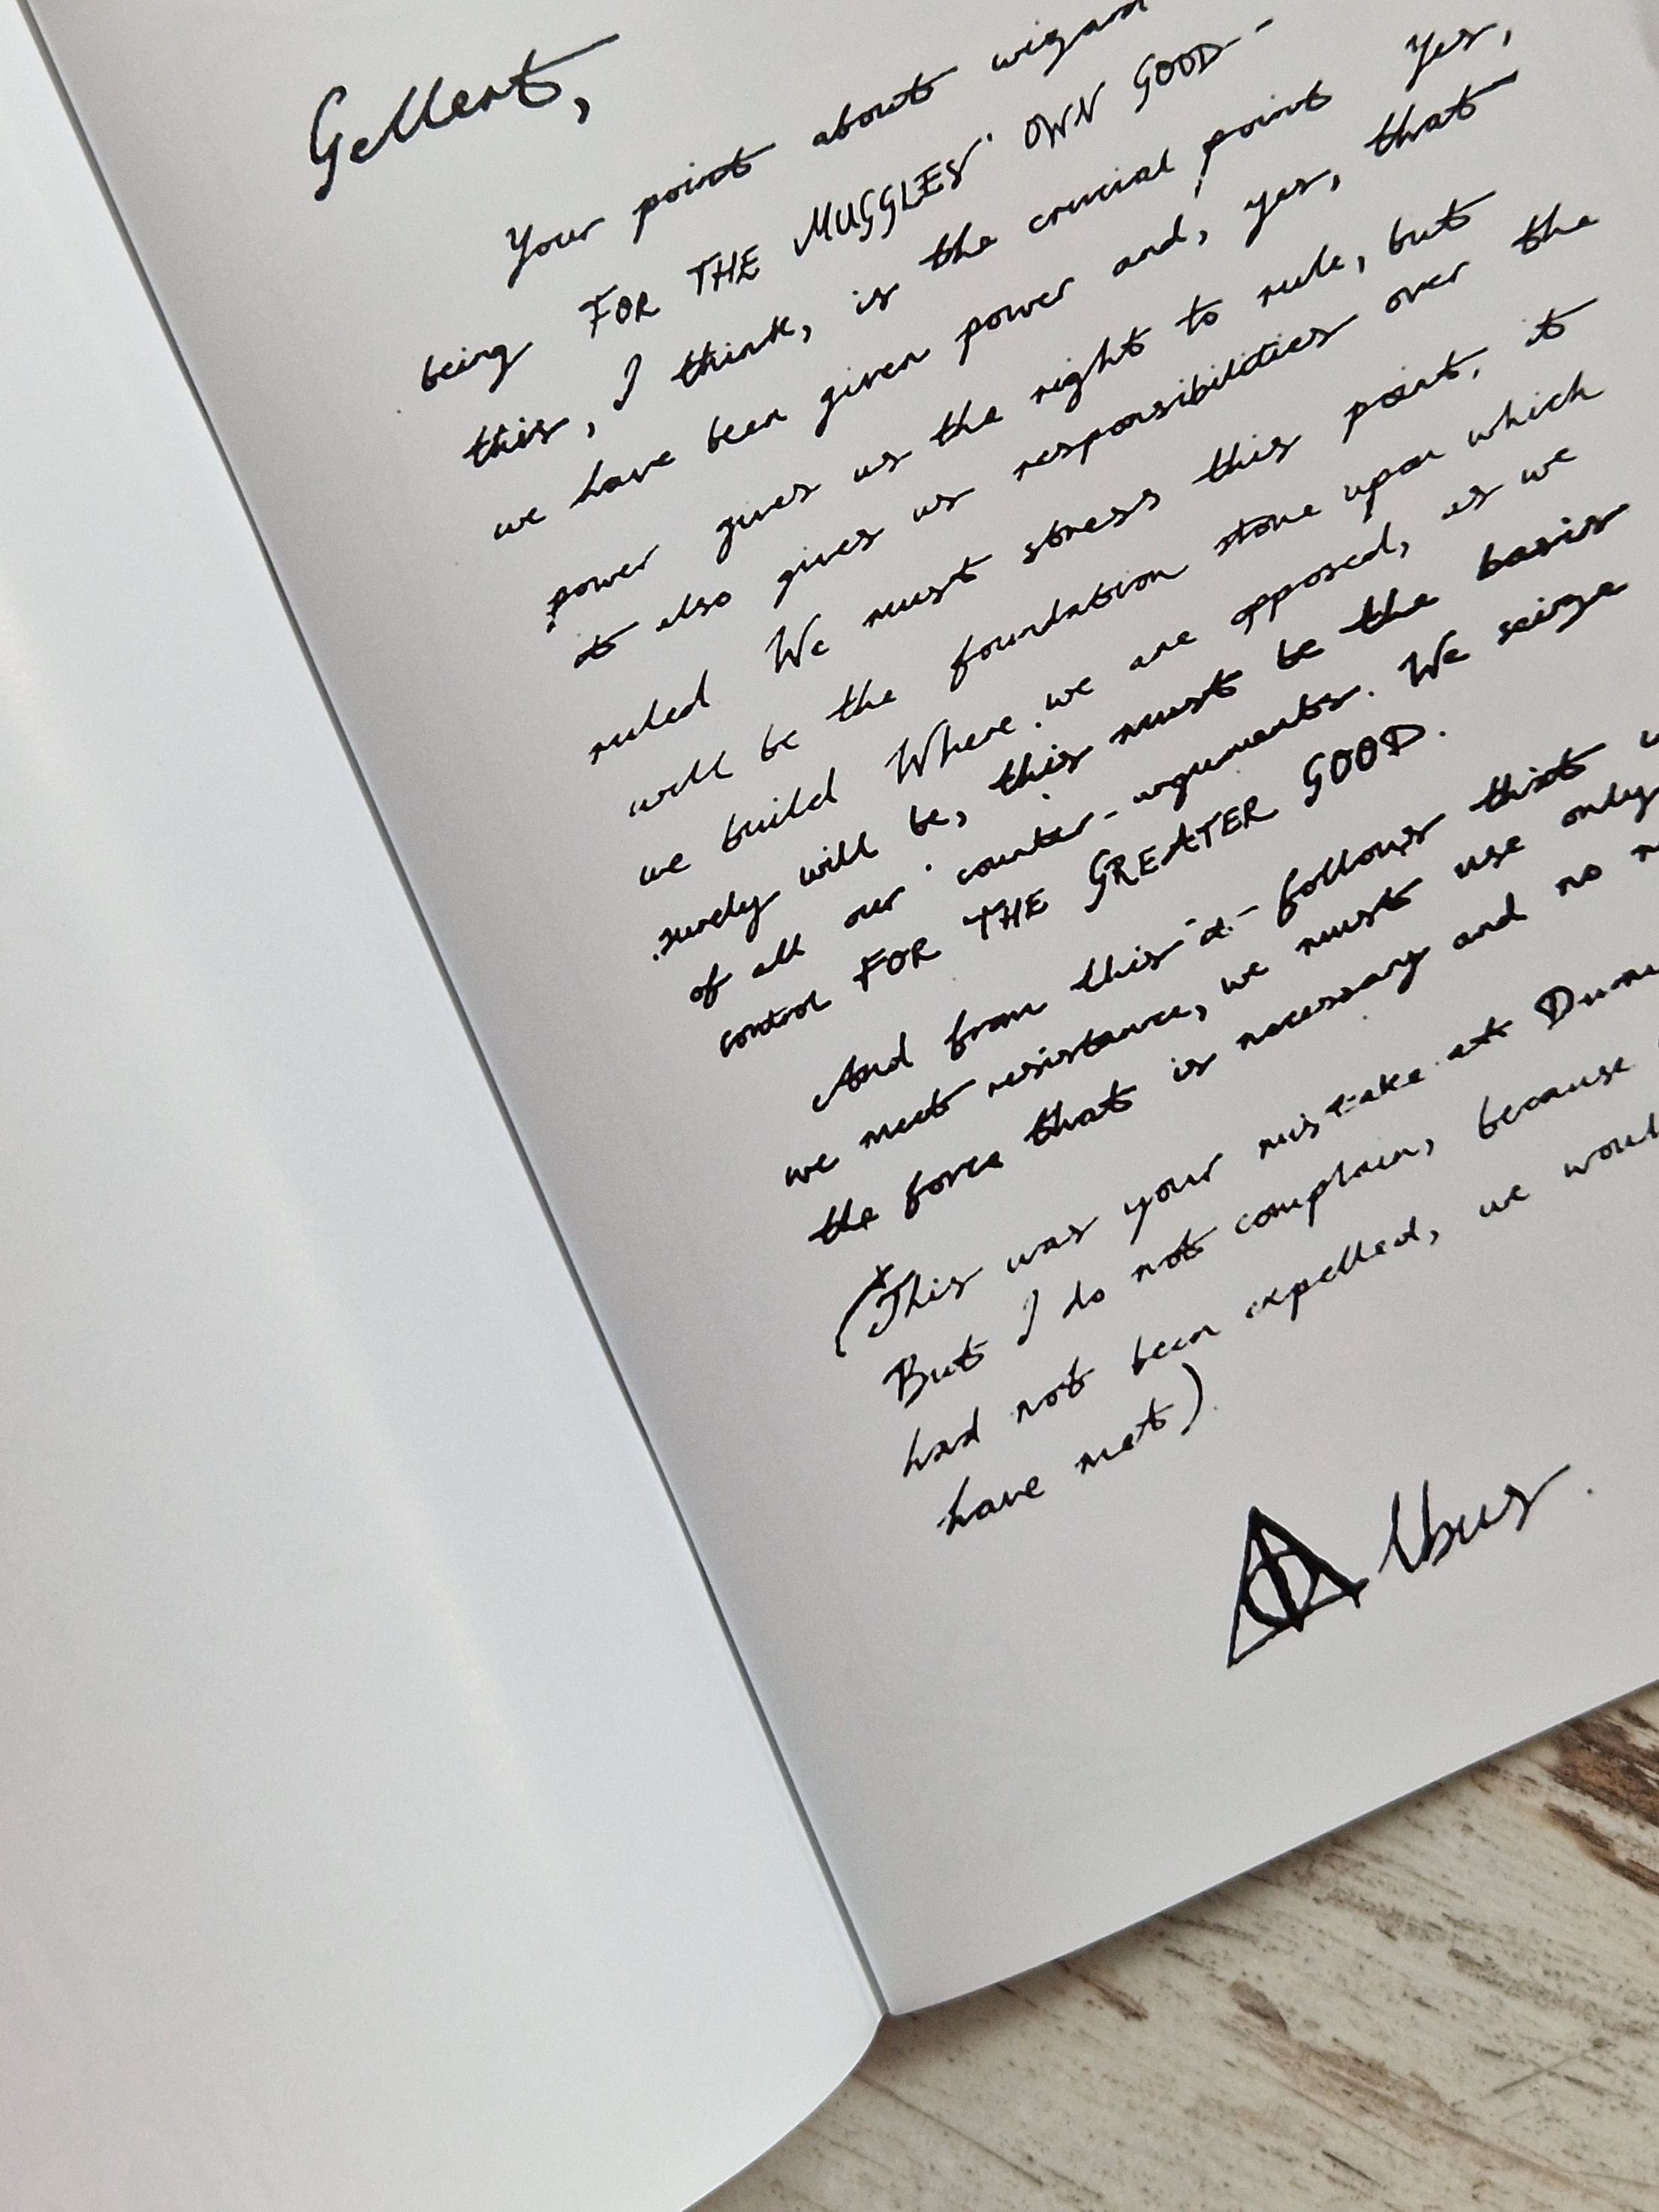 Gellert,
Your point about wizard
being FOR THE MUGGLES' OWN GOOD-
this, I think, is the crucial point Yes,
we have been given power and, yes, that
power gives us the right to rule, but
it also gives us responsibilities over the
ruled We must stress this point, it
will be the foundation stone upon which
we build Where we are opposed, as we
surely will be, this must be the basis
of all our counter-arguments. We seize
control FOR THE GREATER GOOD.
And from this it follows that
we meet resistance, we must use only
the force that is necessary and no
(This was your mistake at
But I do not complain, because
had not been expelled, we
have met)
Albus.